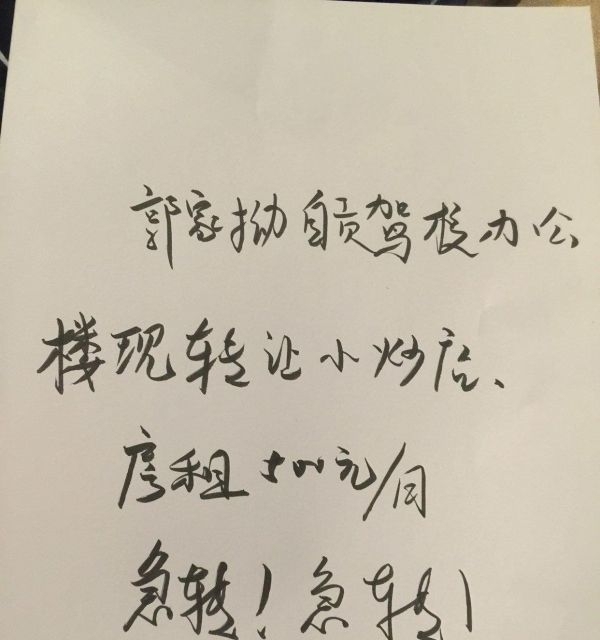 郭家拗自贡驾校办公
楼现转让小炒店、
房租500元/月
急转!急转!